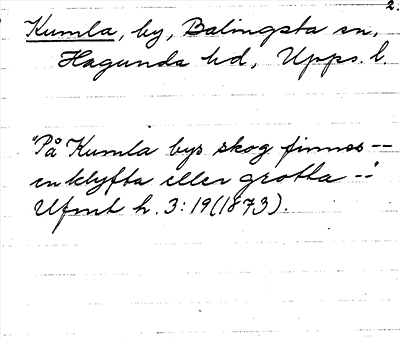 2.
Kumla, by, Balingsta sn,
Hagunda hd, Upps. l.
"På Kumla bys skog finnes --
en klyfta eller grotta --"
Ufmt h. 3:19(1873).